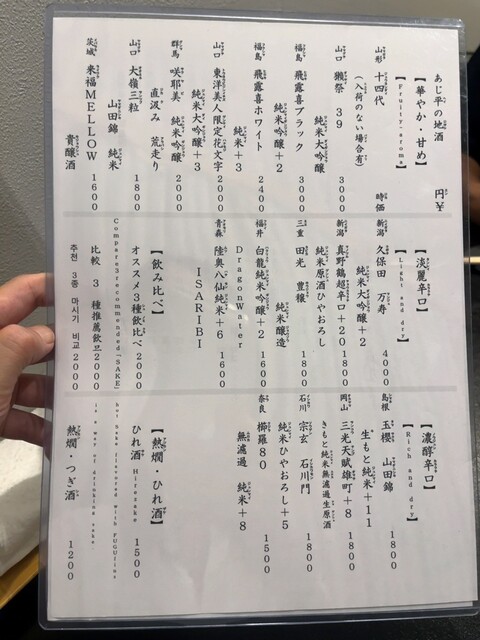 あじ平の地酒 円¥
【華やか・甘め】
【Fruity-aroma】
山形 十四代 時価
(入荷のない場合有)
山口 獺祭 39
純米大吟醸 3000
福島 飛露喜ブラック
純米吟醸+2 3000
福島 飛露喜ホワイト
純米+3 2400
山口 東洋美人限定花文字 2000
純米大吟醸+3
群馬 咲耶美 純米吟醸 2000
直汲み 荒走り
山口 大嶺三粒 1800
山田錦 純米
茨城 来福MELLOW 1600
貴醸酒
【淡麗辛口】
【Light and dry】
新潟 久保田 万寿
純米大吟醸+2 4000
新潟 真野鶴超辛口+20 1800
純米原酒ひやおろし
三重 田光 豊穣 1800
純米醸造
福井 白龍純米吟醸+2 1600
DragonWater
青森 陸奥八仙純米+6 1600
ISARIBI
【飲み比べ】
オススメ3種飲比べ 2000
Compare3recommended「SAKE」
比較 3 種推薦飲료 2000
추천 3종 마시기 비교 2000
【濃醇辛口】
【Rich and dry】
島根 玉櫻 山田錦 1800
生もと純米+11
岡山 三光天賦雄町+8 1800
きもと純米無濾過生原酒
石川 宗玄 石川門 1800
純米ひやおろし+5
奈良 櫛羅80 1500
無濾過 純米+8
【熱燗・ひれ酒】
ひれ酒 Hirezake 1500
hot Sake flavored with FUGUfier
is a way of drinking sake.
熱燗・つぎ酒 1200